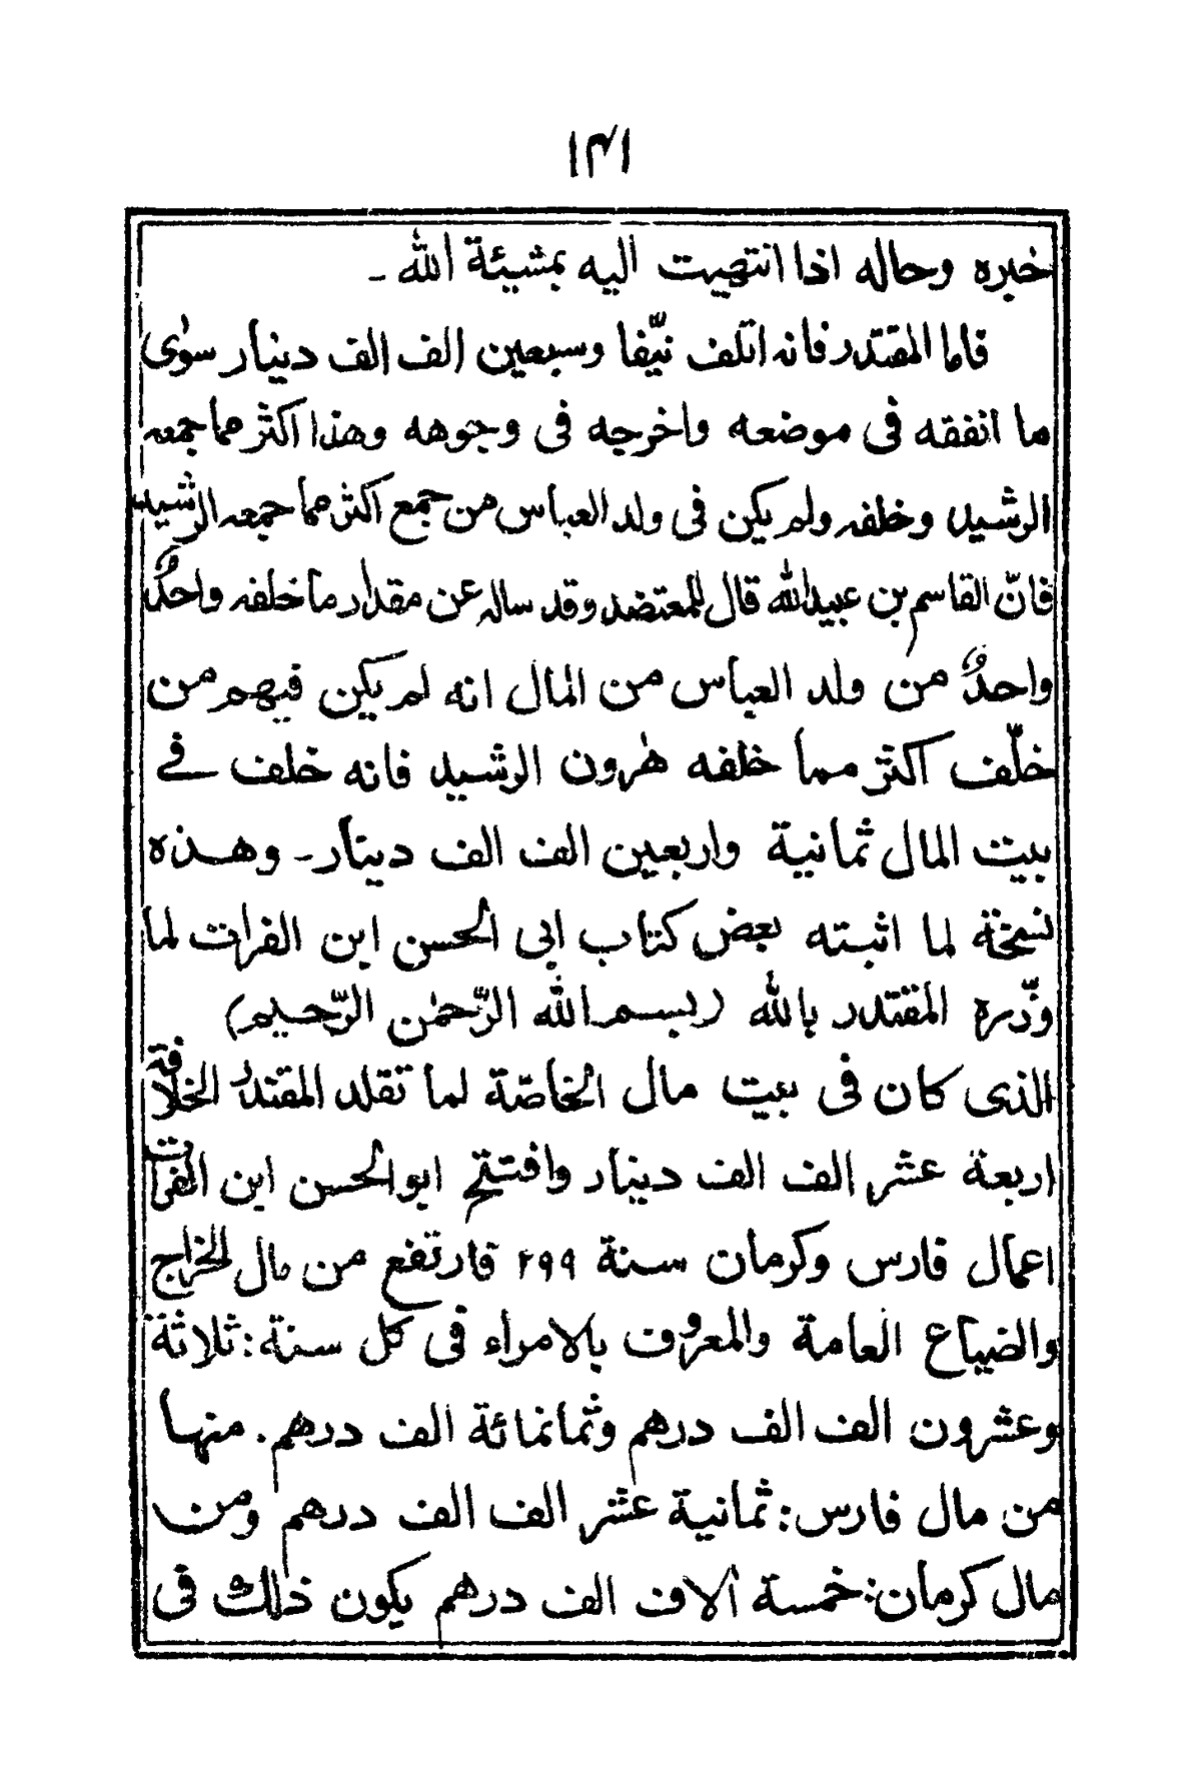 ١٣١
خبره وحاله اذا انتهيت اليه بمشيئة الله ـ
قاما المقتدر فانه اتلف نيّفا وسبعين الف الف دينار سوٰى
ما انفقه فى موضعه واخرجه فى وجوهه وهذا اكثر مما جمعه
الرشيد وخلفه ولم يكن فى ولد العباس من جمع اكثر مما جمعه الرشيد
فانّ القاسم بن عبيدالله قال للمعتضد وقد ساله عن مقدار ما خلفه واحدٌ
واحدٌ من ولد العباس من المال انه لم يكن فيهم من
خلّف اكثر مما خلفه هٰرون الرشيد فانه خلف فے
بيت المال ثمانية واربعين الف الف دينار ـ وهذه
نسخة لما اثبته بعض كتاب ابى الحسن ابن الفرات لما
وزّره المقتدر بالله (بسم الله الرّحمٰن الرّحيم)
الذى كان فى بيت مال الخاصّة لما تقلد المقتدر الخلافة
اربعة عشر الف الف دينار وافتتح ابوالحسن ابن الفرات
اعمال فارس وكرمان سنة ٢٩٩ قارتفع من مال الخراج
والضياع العامة والمعروف بالامراء فى كل سنة: ثلاثة
وعشرون الف الف درهم وثمانمائة الف درهم. منها
من مال فارس: ثمانية عشر الف الف درهم ومن
مال كرمان: خمسة ألاف الف درهم يكون ذلك فى